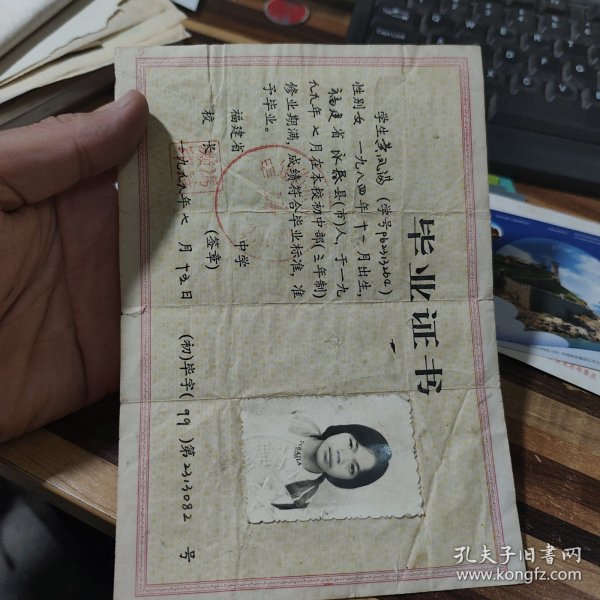 毕业证书
学生 凤 (学号pb2313264)
性别女 一九八四年十一月出生，
福建省永泰县(市)人，于一九
九九年七月在本校初中部(三年制)
修业期满，成绩符合毕业标准，准
予毕业。
福建省 中学
校长 (签章)
一九九九年七月十五日
(初)毕字(99)第2313082号
孔夫子旧书网
www.kongfz.com